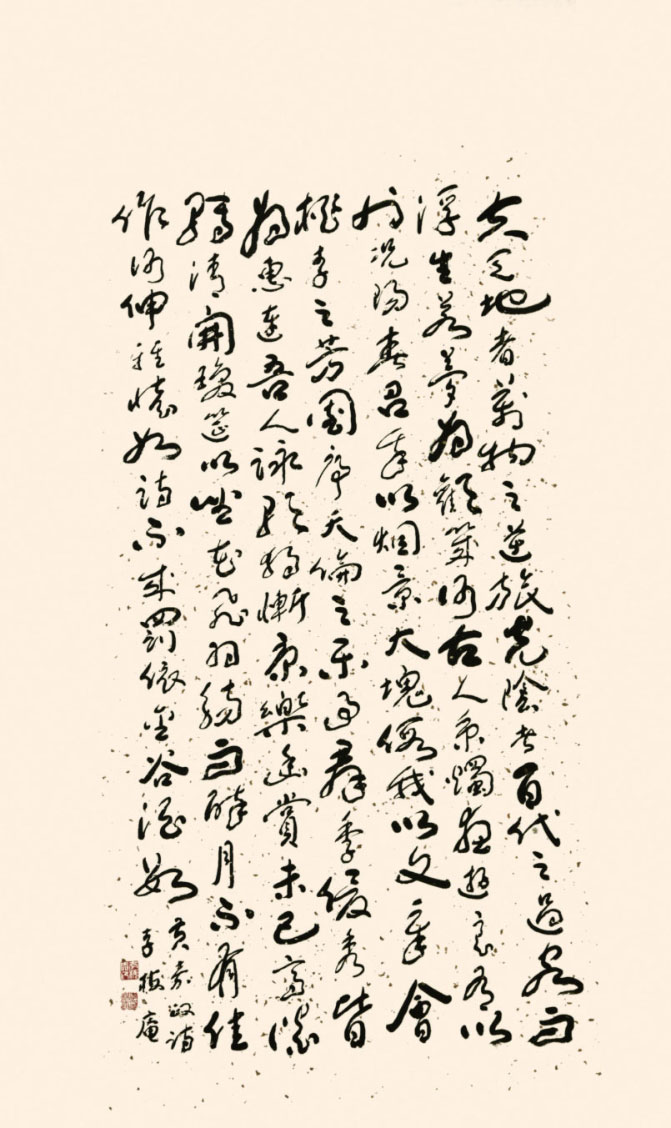 夫天地者萬物之逆旅光陰者百代之過客而
浮生若夢為歡幾何古人秉燭夜遊良有以
也況陽春召我以烟景大塊假我以文章會
桃李之芳園序天倫之樂事群季俊秀皆
為惠連吾人詠歌獨慚康樂幽賞未已高談
轉清開瓊筵以坐花飛羽觴而醉月不有佳
作何伸雅懷如詩不成罰依金谷酒數
黄嘉政
李庵